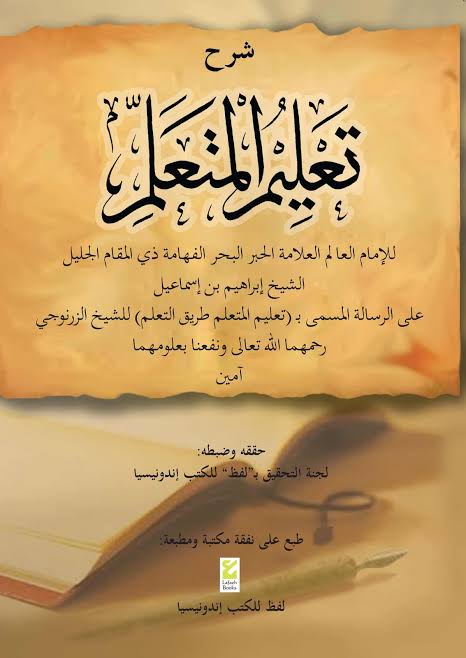 شرح
تَعْلِيمُ الْمُتَعَلِّمِ
للإمام العالم العلامة الحبر البحر الفهامة ذي المقام الجليل
الشيخ إبراهيم بن إسماعيل
على الرسالة المسمى بـ (تعليم المتعلم طريق التعلم) للشيخ الزرنوجي
رحمهما الله تعالى ونفعنا بعلومهما
آمين
حققه وضبطه:
لجنة التحقيق بـ"لفظ" للكتب إندونيسيا
طبع على نفقة مكتبة ومطبعة:
Lafazh
Books
لفظ للكتب إندونيسيا